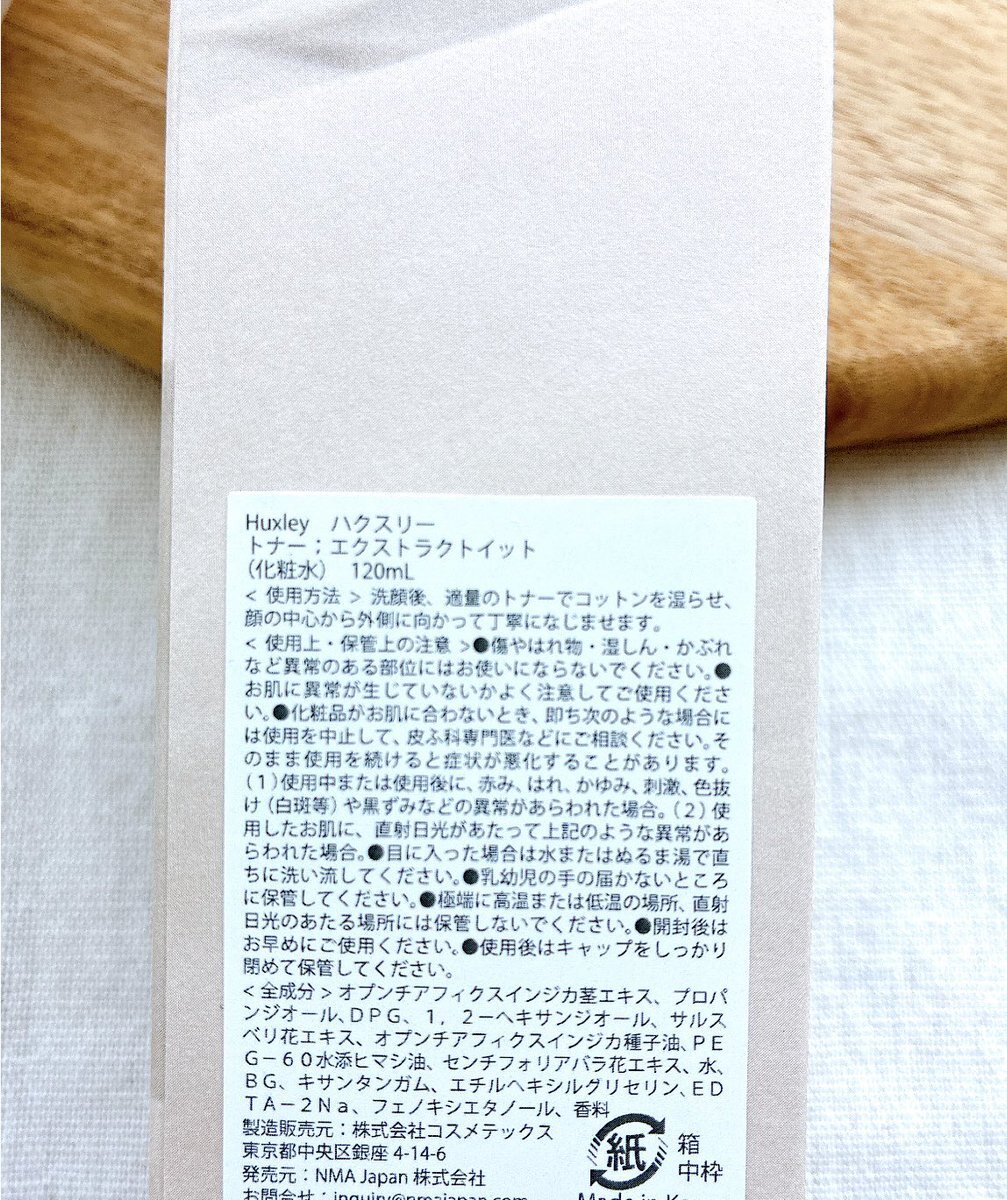 Huxley　ハクスリー
トナー；エクストラクトイット
（化粧水）　120mL
< 使用方法 > 洗顔後、適量のトナーでコットンを湿らせ、
顔の中心から外側に向かって丁寧になじませます。
< 使用上・保管上の注意 >●傷やはれ物・湿しん・かぶれ
など異常のある部位にはお使いにならないでください。●
お肌に異常が生じていないかよく注意してご使用くださ
い。●化粧品がお肌に合わないとき、即ち次のような場合に
は使用を中止して、皮ふ科専門医などにご相談ください。そ
のまま使用を続けると症状が悪化することがあります。
（1）使用中または使用後に、赤み、はれ、かゆみ、刺激、色抜
け（白斑等）や黒ずみなどの異常があらわれた場合。（2）使
用したお肌に、直射日光があたって上記のような異常があ
らわれた場合。●目に入った場合は水またはぬるま湯で直
ちに洗い流してください。●乳幼児の手の届かないところ
に保管してください。●極端に高温または低温の場所、直射
日光のあたる場所には保管しないでください。●開封後は
お早めにご使用ください。●使用後はキャップをしっかり
閉めて保管してください。
< 全成分 > オプンチアフィクスインジカ茎エキス、プロパ
ンジオール、ＤＰＧ、１，２－ヘキサンジオール、サルス
ベリ花エキス、オプンチアフィクスインジカ種子油、ＰＥ
Ｇ－６０水添ヒマシ油、センチフォリアバラ花エキス、水、
ＢＧ、キサンタンガム、エチルヘキシルグリセリン、ＥＤ
ＴＡ－２Ｎａ、フェノキシエタノール、香料
製造販売元：株式会社コスメテックス
東京都中央区銀座 4-14-6
発売元：NMA Japan 株式会社
お問合せ：inquiry@nmajapan.com
紙
箱
中枠
Made in